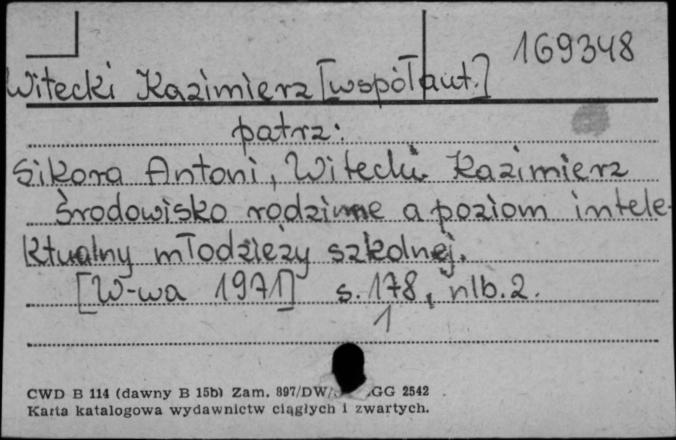 169348
Witecki Kazimierz [współaut.]
patrz:
Sikora Antoni, Witecki Kazimierz
Środowisko rodzinne a poziom intele-
ktualny młodzieży szkolnej.
[W-wa 1971] s. 178, nlb. 2.
1
CWD B 114 (dawny B 15b) Zam. 897/DW/ GG 2542
Karta katalogowa wydawnictw ciągłych i zwartych.